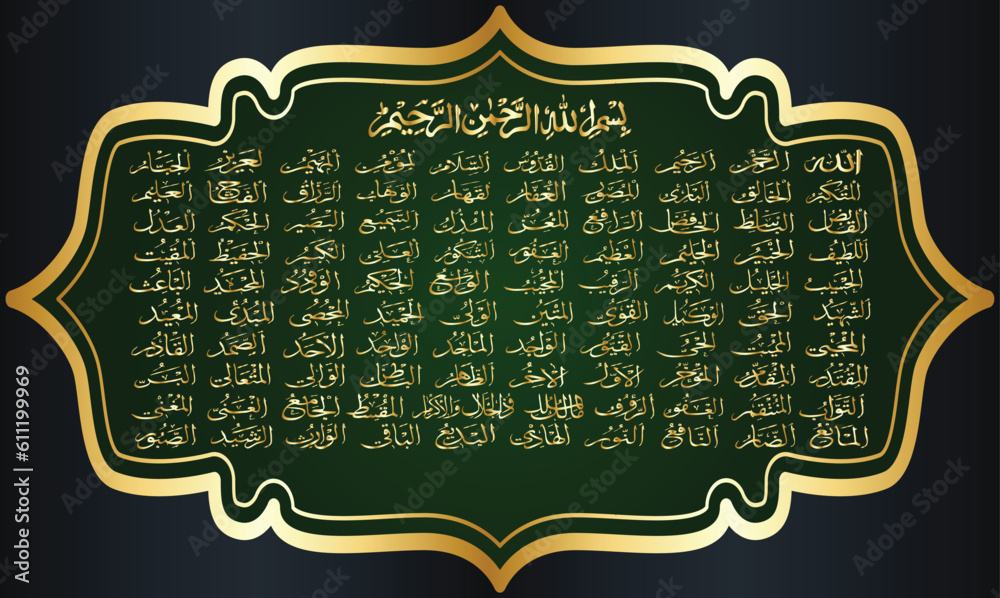 بسم الله الرحمن الرحيم
الله الرحمن الرحيم الملك القدوس السلام المؤمن المهيمن العزيز الجبار
المتكبر الخالق البارئ المصور الغفار القهار الوهاب الرزاق الفتاح العليم
القابض الباسط الخافض الرافع المعز المذل السميع البصير الحكم العدل
اللطيف الخبير الحليم العظيم الغفور الشكور العلي الكبير الحفيظ المقيت
الحسيب الجليل الكريم الرقيب المجيب الواسع الحكيم الودود المجيد الباعث
الشهيد الحق الوكيل القوي المتين الولي الحميد المحصي المبدئ المعيد
المحيي المميت الحي القيوم الواجد الماجد الواحد الاحد الصمد القادر
المقتدر المقدم المؤخر الأول الآخر الظاهر الباطن الوالي المتعالي البر
التواب المنتقم العفو الرؤوف مالك الملك ذو الجلال والإكرام المقسط الجامع الغني المغني
المانع الضار النافع النور الهادي البديع الباقي الوارث الرشيد الصبور
Adobe Stock | #611199969
Adobe Stock